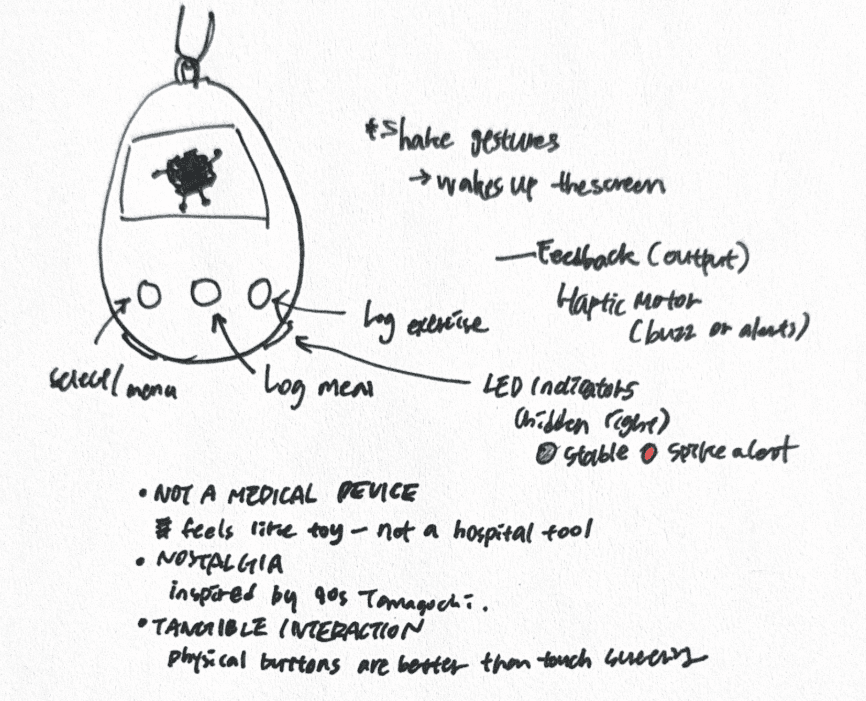 *Shake gestures
→ wakes up the screen
— Feedback (output)
Haptic Motor
(buzz or alerts)
Log exercise
select/menu
Log meal
LED Indicators
(hidden light)
stable spike alert
• NOT A MEDICAL DEVICE
feels like toy – not a hospital tool
• NOSTALGIA
inspired by 90s Tamagochi.
• TANGIBLE INTERACTION
physical buttons are better than touch screens